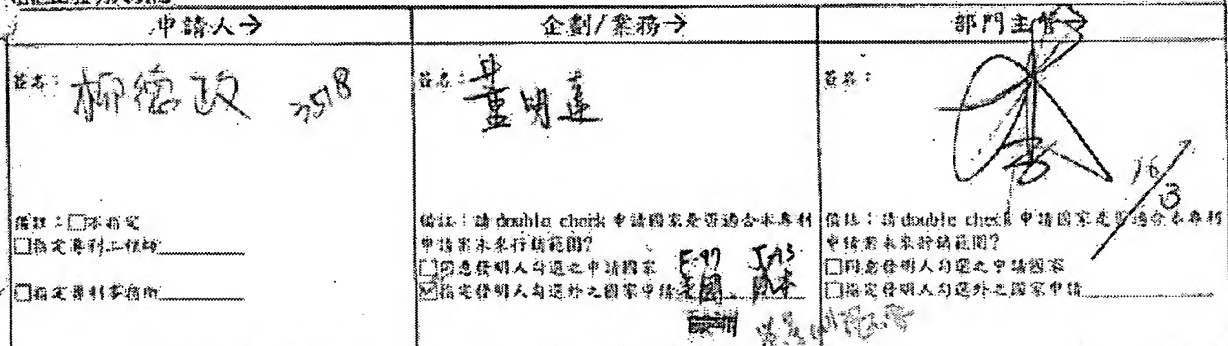 申請人→
企劃/業務→
部門主管→
簽名：柳德政 2518
簽名：董明達
簽名：
16/3
備註：□不指定
□指定專利工程師
□指定專利事務所
備註：請 double check 申請國家是否適合本專利
申請案未來行銷範圍?
□同意發明人勾選之申請國家
☑指定發明人勾選外之國家申請 美國、日本
備註：請 double check 申請國家是否適合本專利
申請案未來行銷範圍?
□同意發明人勾選之申請國家
□指定發明人勾選外之國家申請